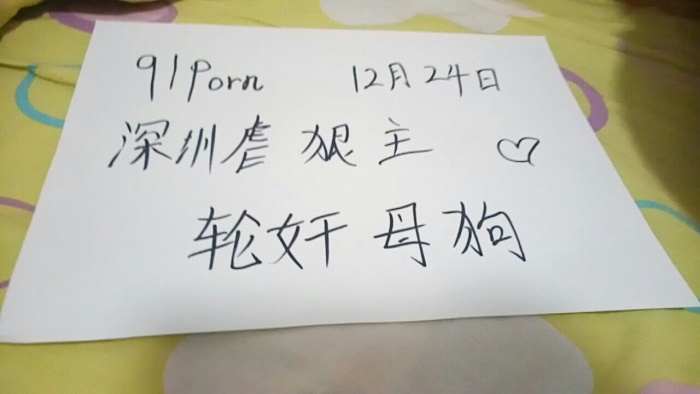 91porn 12月24日
深圳虐狠主 ♡
轮奸母狗